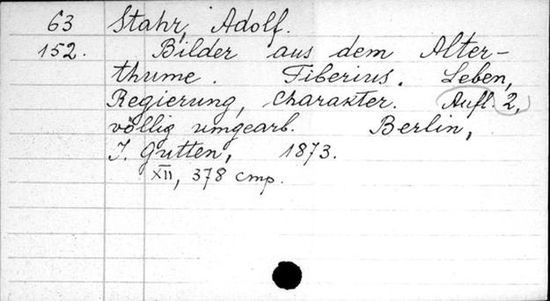 63 Stahr, Adolf.
152. Bilder aus dem Alter-
thume. Tiberius. Leben,
Regierung, Charakter. Aufl. 2,
völlig umgearb. Berlin,
J. Gutten, 1873.
XII, 378 cmp.